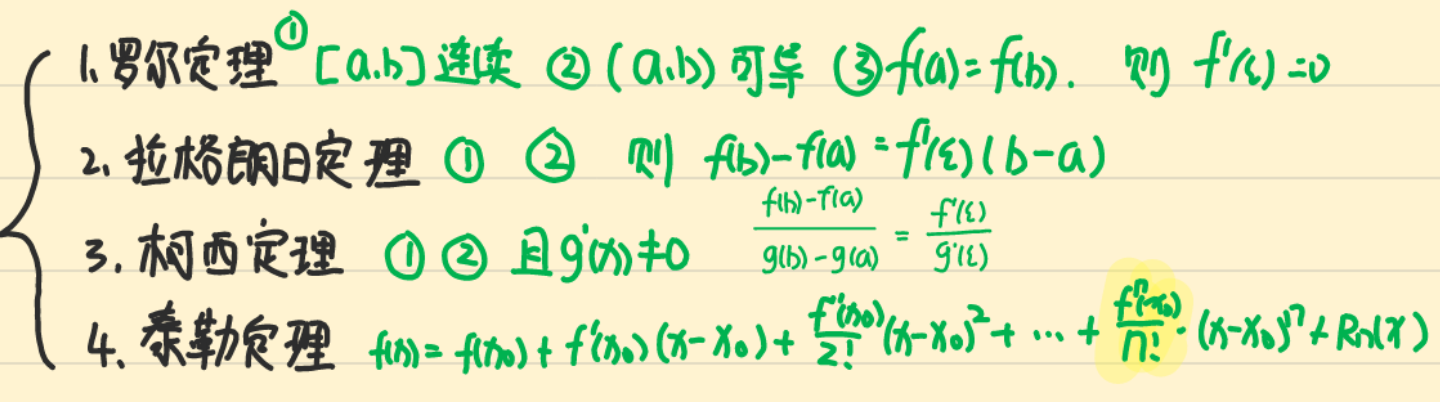 1.罗尔定理 ①[a.b]连续 ②(a.b)可导 ③f(a)=f(b). 则 f'(ξ)=0
2.拉格朗日定理 ① ② 则 f(b)-f(a)=f'(ξ)(b-a)
3.柯西定理 ① ② 且g'(x)≠0 \frac{f(b)-f(a)}{g(b)-g(a)} = \frac{f'(ξ)}{g'(ξ)}
4.泰勒定理 f(x)=f(x₀)+f'(x₀)(x-x₀)+\frac{f''(x₀)}{2!}(x-x₀)²+…+\frac{fⁿ(x₀)}{n!}·(x-x₀)ⁿ+Rn(x)